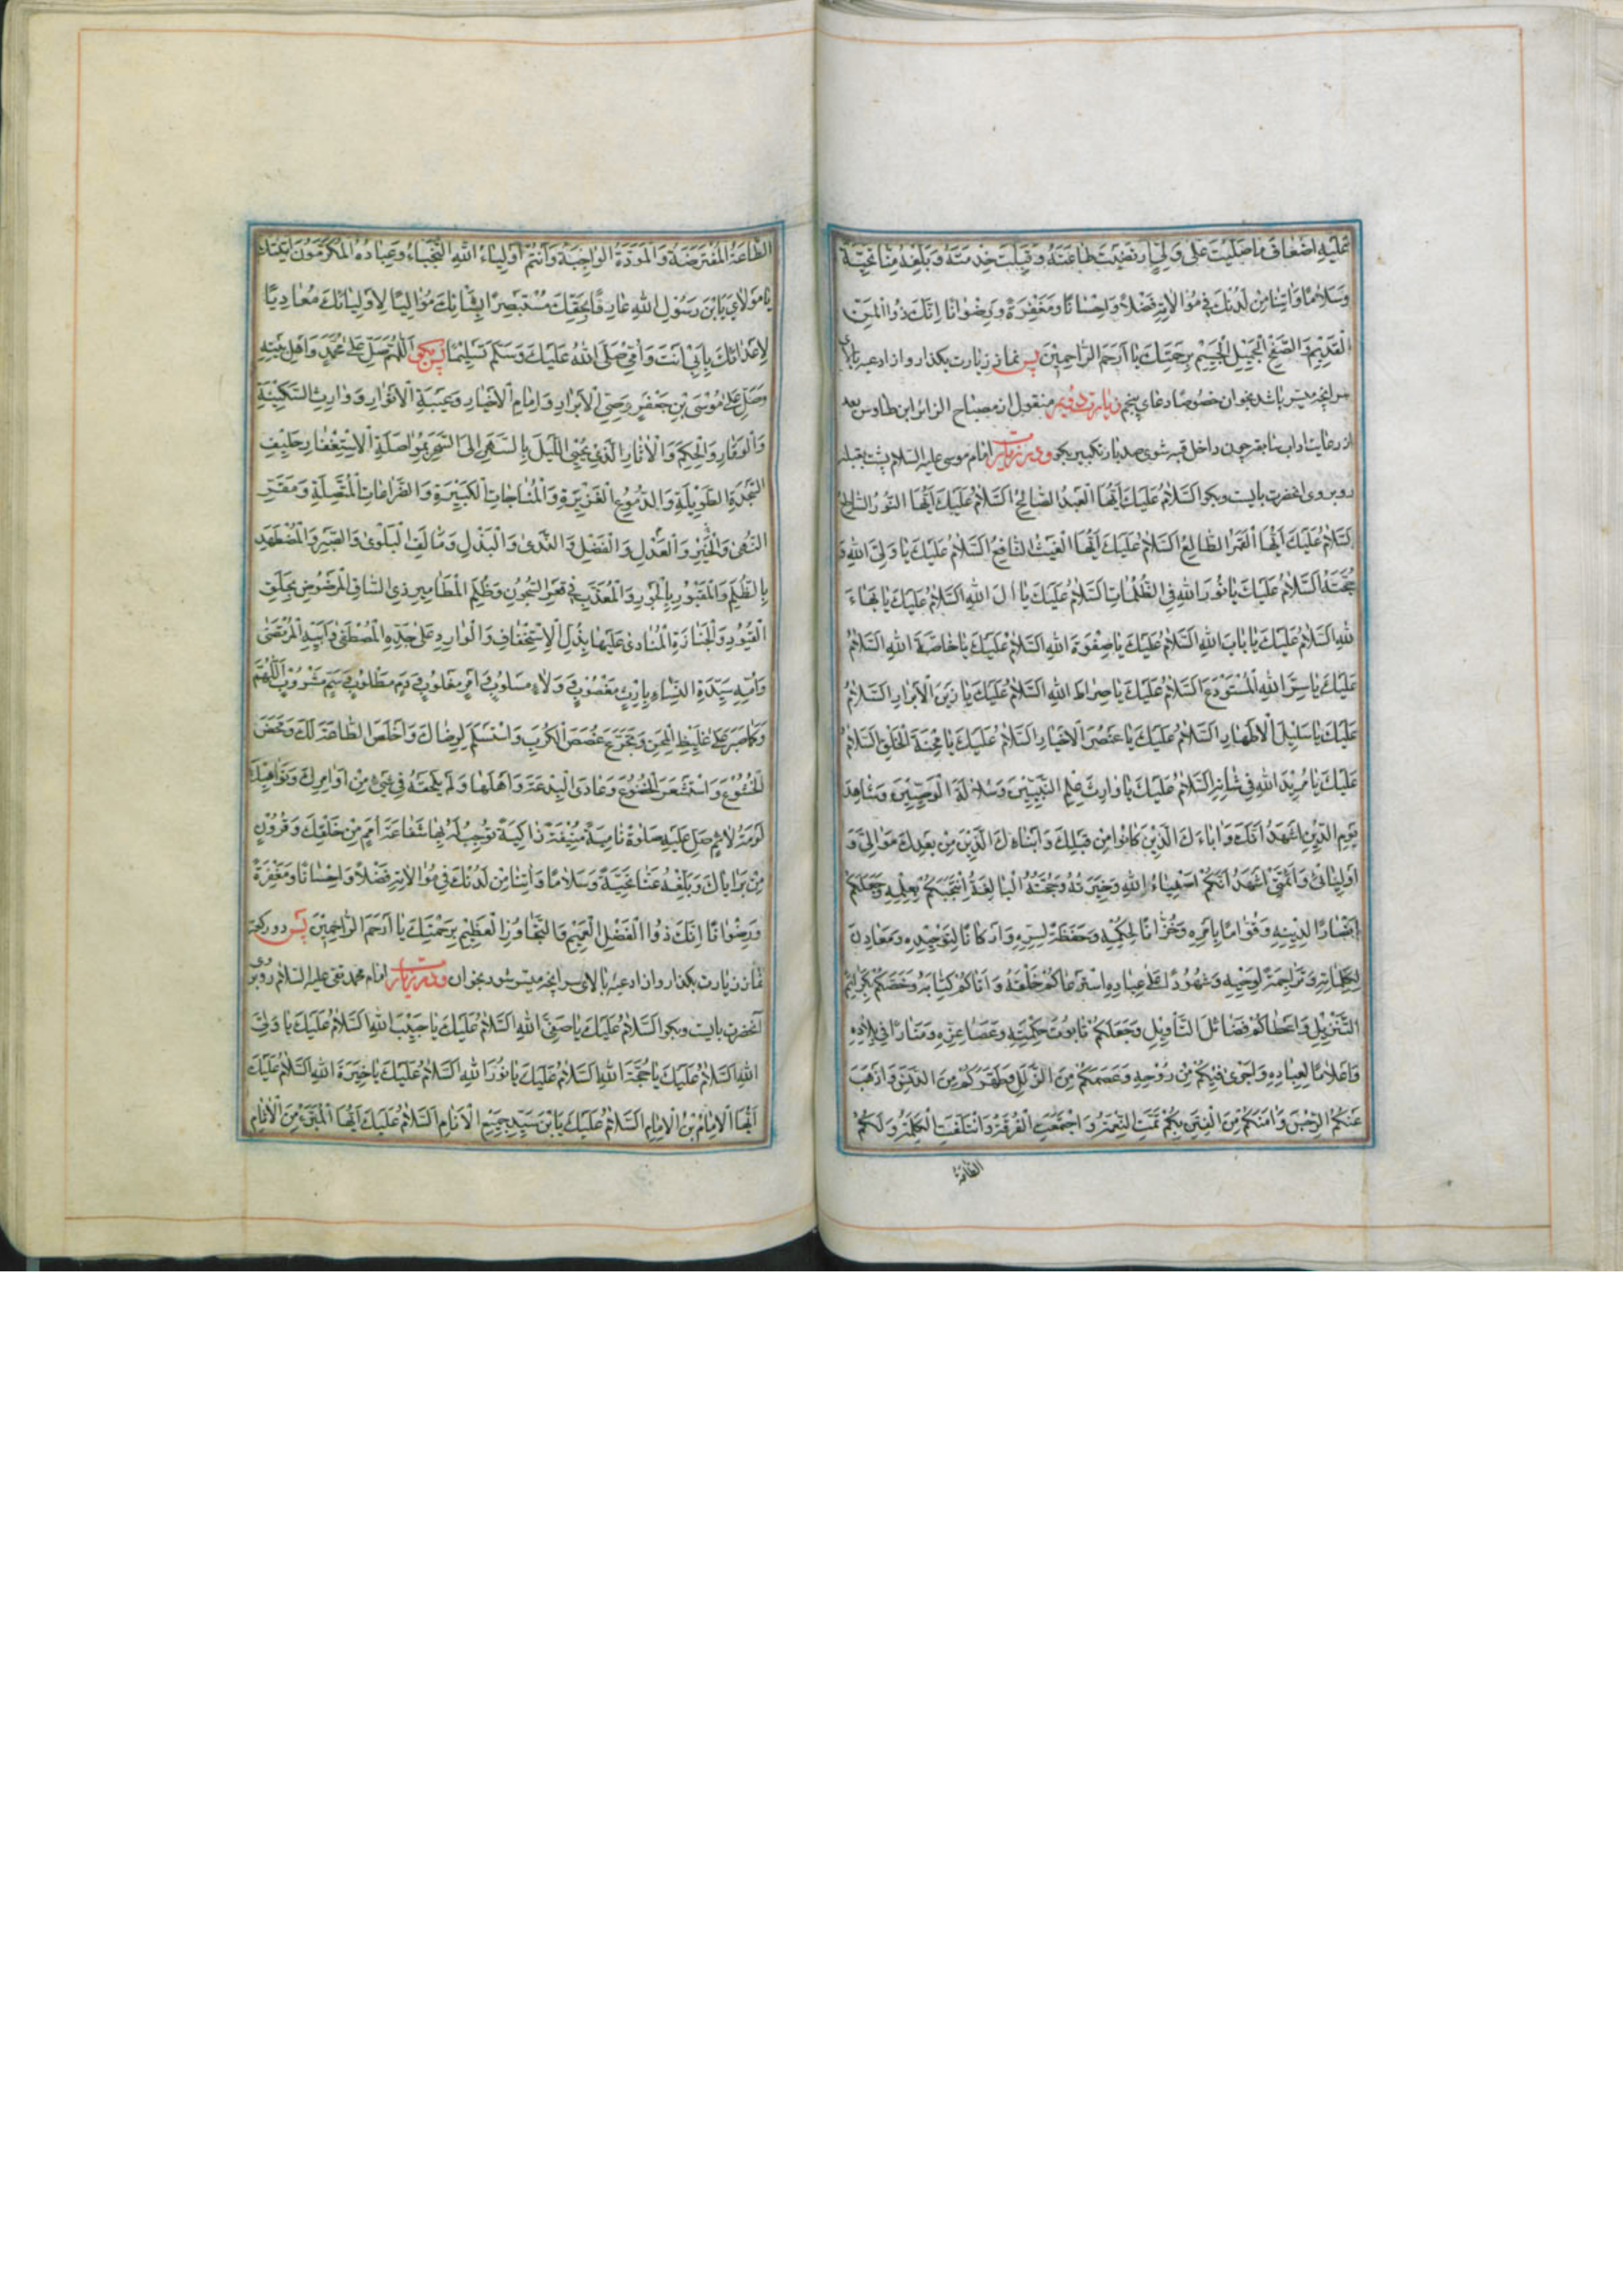 عَلَيْهِ اَضْعَافَ مَا صَلَّيْتَ عَلٰى وَلِيٍّ ارْتَضَيْتَ طَاعَتَهُ وَقَبِلْتَ خِدْمَتَهُ وَبَلِّغْهُ مِنَّا تَحِيَّةً
وَسَلَامًا وَاٰتِنَا مِنْ لَدُنْكَ فِي مُوَالَاتِهِ فَضْلًا وَاِحْسَانًا وَمَغْفِرَةً وَرِضْوَانًا اِنَّكَ ذُو الْمَنِّ
الْقَدِيْمِ وَالصَّفْحِ الْجَمِيْلِ الْجَسِيْمِ بِرَحْمَتِكَ يَا اَرْحَمَ الرَّاحِمِيْنَ پس نماز زیارت بکذار و از ادعیه بالای
سر انچه میسر باشد بخوان خصوصا دعای پنجم زیارت دویم منقول از مصباح الزائر ابن طاوس بعد
از رعایت اداب سابقه چون داخل قبه شوی صد بار تکبیر بکو و در زیارت امام موسی علیه السلام پشت بقبله
روبروی انحضرت بایست وبکو اَلسَّلَامُ عَلَيْكَ اَيُّهَا الْعَبْدُ الصَّالِحُ اَلسَّلَامُ عَلَيْكَ اَيُّهَا النُّوْرُ السَّاطِعُ
اَلسَّلَامُ عَلَيْكَ اَيُّهَا الْقَمَرُ الطَّالِعُ اَلسَّلَامُ عَلَيْكَ اَيُّهَا الْغَيْثُ النَّافِعُ اَلسَّلَامُ عَلَيْكَ يَا وَلِيَّ اللّٰهِ وَ
حُجَّتَهُ اَلسَّلَامُ عَلَيْكَ يَا نُوْرَ اللّٰهِ فِي الظُّلُمَاتِ اَلسَّلَامُ عَلَيْكَ يَا اٰلَ اللّٰهِ اَلسَّلَامُ عَلَيْكَ يَا بَهَاءَ
اللّٰهِ اَلسَّلَامُ عَلَيْكَ يَا بَابَ اللّٰهِ اَلسَّلَامُ عَلَيْكَ يَا صِفْوَةَ اللّٰهِ اَلسَّلَامُ عَلَيْكَ يَا خَاصَّةَ اللّٰهِ اَلسَّلَامُ
عَلَيْكَ يَا سِرَّ اللّٰهِ الْمُسْتَوْدَعَ اَلسَّلَامُ عَلَيْكَ يَا صِرَاطَ اللّٰهِ اَلسَّلَامُ عَلَيْكَ يَا زَيْنَ الْاَبْرَارِ اَلسَّلَامُ
عَلَيْكَ يَا سَلِيْلَ الْاَطْهَارِ اَلسَّلَامُ عَلَيْكَ يَا عُنْصُرَ الْاَخْيَارِ اَلسَّلَامُ عَلَيْكَ يَا مِحْنَةَ الْخَلْقِ اَلسَّلَامُ
عَلَيْكَ يَا مُرِيْدَ اللّٰهِ فِي شَانِهِ اَلسَّلَامُ عَلَيْكَ يَا وَارِثَ عِلْمِ النَّبِيِّيْنَ وَسُلَالَةَ الْوَصِيِّيْنَ وَشَاهِدَ
يَوْمِ الدِّيْنِ اَشْهَدُ اَنَّكَ وَاٰبَاءَكَ الَّذِيْنَ كَانُوْا مِنْ قَبْلِكَ وَاَبْنَاءَكَ الَّذِيْنَ مِنْ بَعْدِكَ مَوَالِيَّ وَ
اَوْلِيَائِيْ وَاَئِمَّتِيْ اَشْهَدُ اَنَّكُمْ اَصْفِيَاءُ اللّٰهِ وَخِيَرَتُهُ وَحُجَّتُهُ الْبَالِغَةُ انْتَجَبَكُمْ بِعِلْمِهِ وَجَعَلَكُمْ
اَنْصَارًا لِدِيْنِهِ وَقُوَّامًا بِاَمْرِهِ وَخُزَّانًا لِحُكْمِهِ وَحَفَظَةً لِسِرِّهِ وَاَرْكَانًا لِتَوْحِيْدِهِ وَمَعَادِنَ
لِكَلِمَاتِهِ وَتَرَاجِمَةً لِوَحْيِهِ وَشُهُوْدًا عَلٰى عِبَادِهِ اسْتَرْعَاكُمْ خَلْقَهُ وَاٰتَاكُمْ كِتَابَهُ وَخَصَّكُمْ بِكَرَائِمِ
التَّنْزِيْلِ وَاَعْطَاكُمْ فَضَائِلَ التَّاْوِيْلِ وَجَعَلَكُمْ تَابُوْتَ حِكْمَتِهِ وَعَصَا عِزِّهِ وَمَنَارًا فِي بِلَادِهِ
وَاَعْلَامًا لِعِبَادِهِ وَاَجْرٰى فِيْكُمْ مِنْ رُوْحِهِ وَعَصَمَكُمْ مِنَ الزَّلَلِ وَطَهَّرَكُمْ مِنَ الدَّنَسِ وَاَذْهَبَ
عَنْكُمُ الرِّجْسَ وَاٰمَنَكُمْ مِنَ الْفِتَنِ بِكُمْ تَمَّتِ النِّعْمَةُ وَاجْتَمَعَتِ الْفُرْقَةُ وَائْتَلَفَتِ الْكَلِمَةُ وَلَكُمْ
الطاعة
الطَّاعَةُ الْمُفْتَرَضَةُ وَالْمَوَدَّةُ الْوَاجِبَةُ وَاَنْتُمْ اَوْلِيَاءُ اللّٰهِ النُّجَبَاءُ وَعِبَادُهُ الْمُكْرَمُوْنَ اَتَيْتُكَ
يَا مَوْلَايَ يَا بْنَ رَسُوْلِ اللّٰهِ عَارِفًا بِحَقِّكَ مُسْتَبْصِرًا بِشَانِكَ مُوَالِيًا لِاَوْلِيَائِكَ مُعَادِيًا
لِاَعْدَائِكَ بِاَبِيْ اَنْتَ وَاُمِّيْ صَلَّى اللّٰهُ عَلَيْكَ وَسَلَّمَ تَسْلِيْمًا پس بکو اَللّٰهُمَّ صَلِّ عَلٰى مُحَمَّدٍ وَاَهْلِ بَيْتِهِ
وَصَلِّ عَلٰى مُوْسَى بْنِ جَعْفَرٍ وَصِيِّ الْاَبْرَارِ وَاِمَامِ الْاَخْيَارِ وَعَيْبَةِ الْاَنْوَارِ وَوَارِثِ السَّكِيْنَةِ
وَالْوَقَارِ وَالْحِكَمِ وَالْاٰثَارِ الَّذِيْ يُحْيِي اللَّيْلَ بِالسَّهَرِ اِلَى السَّحَرِ بِمُوَاصَلَةِ الْاِسْتِغْفَارِ حَلِيْفِ
السَّجْدَةِ الطَّوِيْلَةِ وَالدُّمُوْعِ الْغَزِيْرَةِ وَالْمُنَاجَاتِ الْكَثِيْرَةِ وَالضَّرَاعَاتِ الْمُتَّصِلَةِ وَمَقَرِّ
النُّهٰى وَالْخَيْرِ وَالْعَدْلِ وَالْفَضْلِ وَالنَّدٰى وَالْبَذْلِ وَمَأْلَفِ الْبَلْوٰى وَالصَّبْرِ وَالْمُضْطَهَدِ
بِالظُّلْمِ وَالْمَقْبُوْرِ بِالْجَوْرِ وَالْمُعَذَّبِ فِي قَعْرِ السُّجُوْنِ وَظُلَمِ الْمَطَامِيْرِ ذِي السَّاقِ الْمَرْضُوْضِ بِحَلَقِ
الْقُيُوْدِ وَالْجَنَازَةِ الْمُنَادٰى عَلَيْهَا بِذُلِّ الْاِسْتِخْفَافِ وَالْوَارِدِ عَلٰى جَدِّهِ الْمُصْطَفٰى وَاَبِيْهِ الْمُرْتَضٰى
وَاُمِّهِ سَيِّدَةِ النِّسَاءِ بِاِرْثٍ مَغْصُوْبٍ وَوَلَاءٍ مَسْلُوْبٍ وَاَمْرٍ مَغْلُوْبٍ وَدَمٍ مَطْلُوْبٍ وَسَمٍّ مَشْرُوْبٍ اَللّٰهُمَّ
وَكَمَا صَبَرَ عَلٰى غَلِيْظِ الْمِحَنِ وَتَجَرَّعَ غُصَصَ الْكُرَبِ وَاسْتَسْلَمَ لِرِضَاكَ وَاَخْلَصَ الطَّاعَةَ لَكَ وَمَحَضَ
الْخُشُوْعَ وَاسْتَشْعَرَ الْخُضُوْعَ وَعَادَى الْبِدْعَةَ وَاَهْلَهَا وَلَمْ يَلْحَقْهُ فِي شَيْءٍ مِنْ اَوَامِرِكَ وَنَوَاهِيْكَ
لَوْمَةُ لَائِمٍ صَلِّ عَلَيْهِ صَلٰوةً نَامِيَةً مُنِيْفَةً زَاكِيَةً تُوْجِبُ لَهُ بِهَا شَفَاعَةَ اُمَمٍ مِنْ خَلْقِكَ وَقُرُوْنٍ
مِنْ بَرَايَاكَ وَبَلِّغْهُ عَنَّا تَحِيَّةً وَسَلَامًا وَاٰتِنَا مِنْ لَدُنْكَ فِي مُوَالَاتِهِ فَضْلًا وَاِحْسَانًا وَمَغْفِرَةً
وَرِضْوَانًا اِنَّكَ ذُو الْفَضْلِ الْعَمِيْمِ وَالتَّجَاوُزِ الْعَظِيْمِ بِرَحْمَتِكَ يَا اَرْحَمَ الرَّاحِمِيْنَ پس دو رکعت
نماز زیارت بکذار و از ادعیه بالای سر انچه میسر شود بخوان و در زیارت امام محمد تقی علیه السلام روبروی
آنحضرت بایست وبکو اَلسَّلَامُ عَلَيْكَ يَا صَفِيَّ اللّٰهِ اَلسَّلَامُ عَلَيْكَ يَا حَبِيْبَ اللّٰهِ اَلسَّلَامُ عَلَيْكَ يَا وَلِيَّ
اللّٰهِ اَلسَّلَامُ عَلَيْكَ يَا حُجَّةَ اللّٰهِ اَلسَّلَامُ عَلَيْكَ يَا نُوْرَ اللّٰهِ اَلسَّلَامُ عَلَيْكَ يَا خِيَرَةَ اللّٰهِ اَلسَّلَامُ عَلَيْكَ
اَيُّهَا الْاِمَامُ بْنُ الْاِمَامِ اَلسَّلَامُ عَلَيْكَ يَا بْنَ سَيِّدِ جَمِيْعِ الْاَنَامِ اَلسَّلَامُ عَلَيْكَ اَيُّهَا الْمُبَرَّءُ مِنَ الْاٰثَامِ